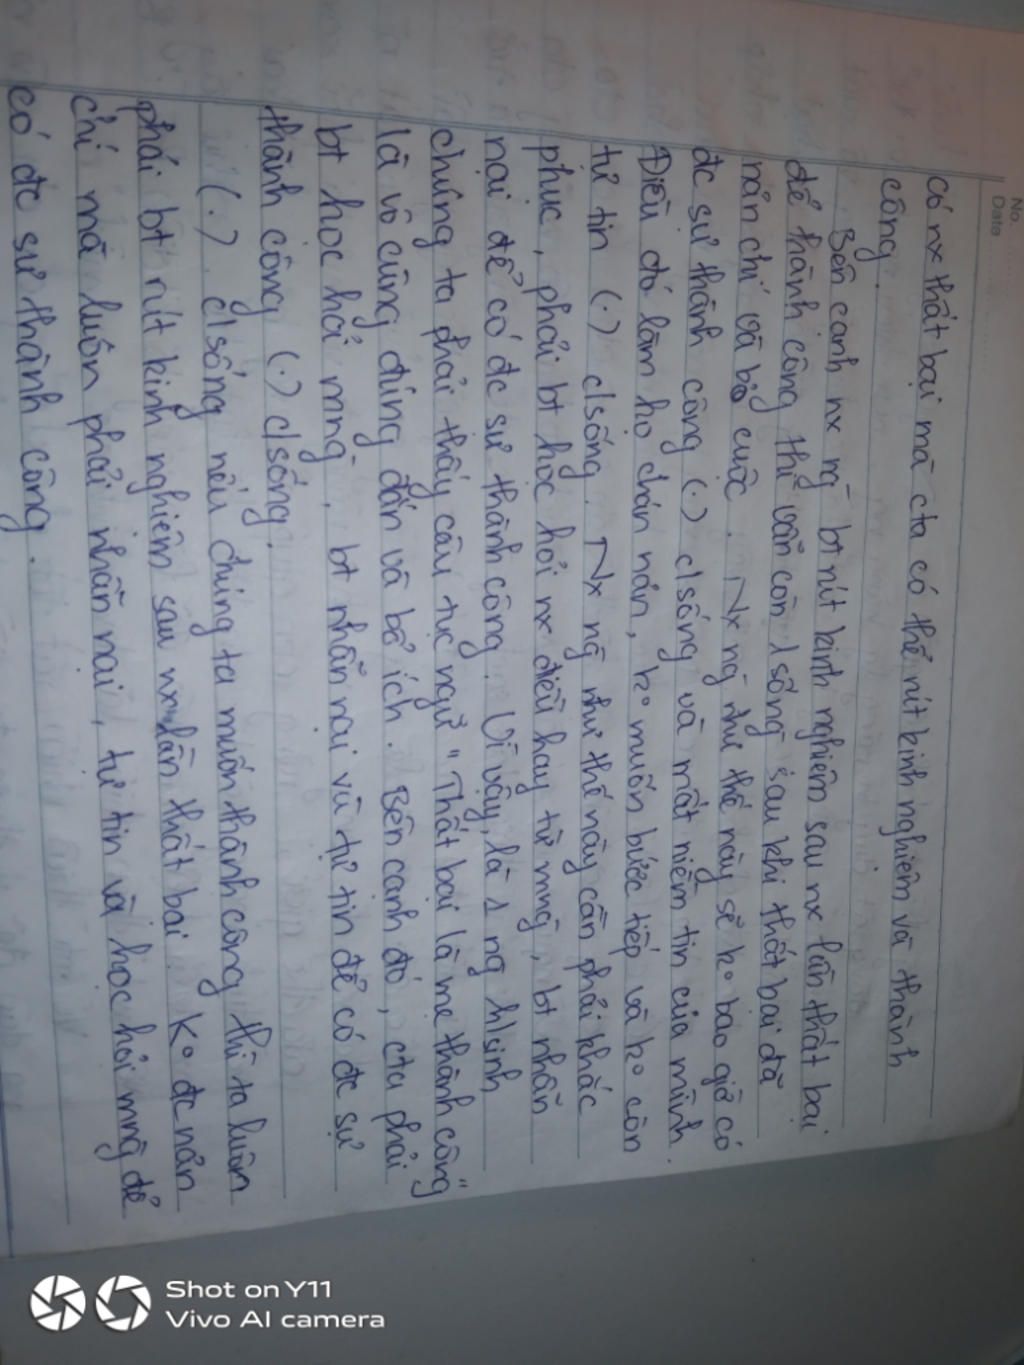 No.
Date
có nx thất bại mà cta có thể rút kinh nghiệm và thành
công.
Bên cạnh nx ng~ bt rút kinh nghiệm sau nx lần thất bại
để thành công thì vẫn còn 1 số ng~ sau khi thất bại đã
nản chí và bỏ cuộc. Nx ng~ như thế này sẽ ko bao giờ có
đc sự thành công (.) c/sống và mất niềm tin của mình.
Điều đó làm họ chán nản, ko muốn bước tiếp và ko còn
tự tin (.) c/sống. Nx ng~ như thế này cần phải khắc
phục, phải bt học hỏi nx điều hay từ mng~, bt nhẫn
nại để có đc sự thành công. Vì vậy, là 1 ng~ h/sinh
chúng ta phải thấy câu tục ngữ "Thất bại là mẹ thành công"
là vô cùng đúng đắn và bổ ích. Bên cạnh đó, cta phải
bt học hỏi mng~, bt nhẫn nại và tự tin để có đc sự
thành công (.) c/sống.
(.) c/sống, nếu chúng ta muốn thành công thì ta luôn
phải bt rút kinh nghiệm sau nx lần thất bại. Ko đc nản
chí mà luôn phải nhẫn nại, tự tin và học hỏi mng~ để
có đc sự thành công.
Shot on Y11
Vivo AI camera